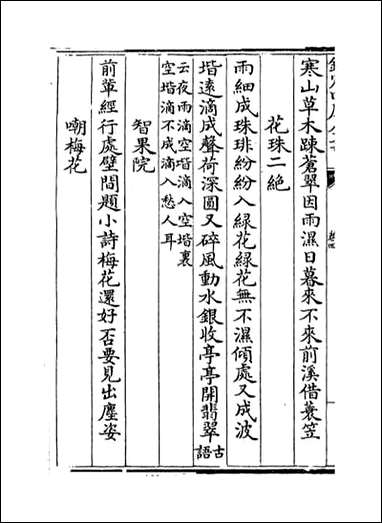 寒山草木踈蒼翠因雨濕日暮來不來前溪借蓑笠
花珠二絶
雨細成珠琲紛紛入緑花緑花無不濕傾處又成波
堦遠滴成聲荷深圓又碎風動水銀收亭亭開翡翠古語
云夜雨滴空堦滴入空堦裏
空堦滴不成滴入愁人耳
智果院
前輩經行處壁間題小詩梅花還好否要見出塵姿
嘲梅花